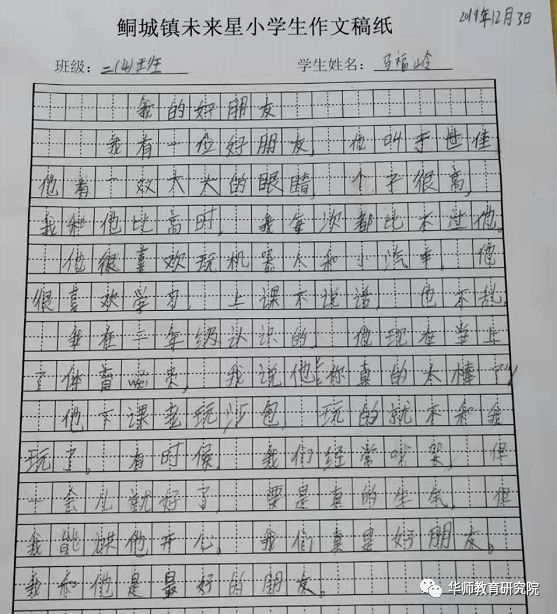 鲖城镇未来星小学生作文稿纸
2019年12月3日
班级：二(4)班 学生姓名：马福岭
我的好朋友
我有一位好朋友，他叫李世佳，
他有一双大大的眼睛，个子很高，
我和他比高时，我每次都比不过他。
他很喜欢玩机器人和小汽车，他
很喜欢学习，上课不说话，也不乱，
我在二年级认识的，他现在当上
了体育 员，我说他：“你真的太棒了”
他下课老玩沙包，玩的就不和我
玩了。有时候，我们经常吵架，但
一会儿就好了，要是真的生气，但
我能哄他开心。我们真是好朋友。
我和他是最好的朋友。
华师教育研究院